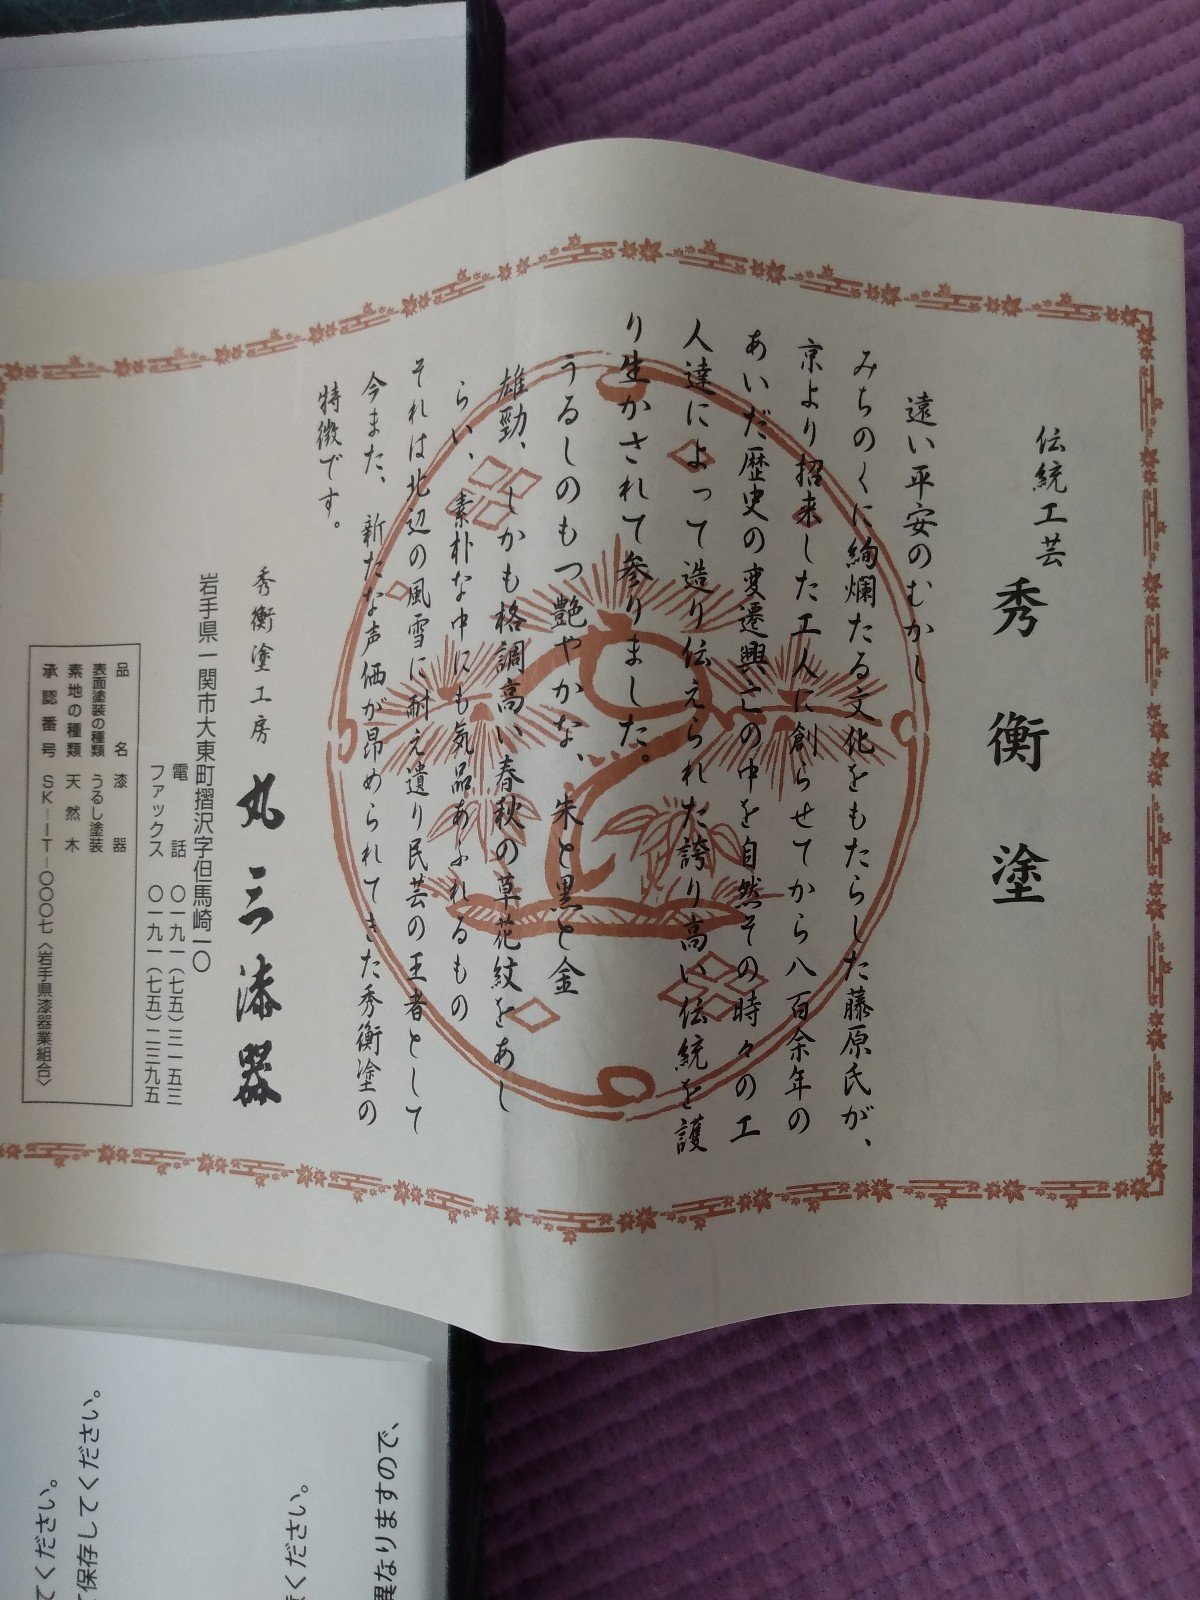 伝統工芸 秀衡塗
遠い平安のむかし
みちのくに絢爛たる文化をもたらした藤原氏が、
京より招来した工人に創らせてから八百余年の
あいだ歴史の変遷興亡の中を自然その時々の工
人達によって造り伝えられた誇り高い伝統を護
り生かされて参りました。
うるしのもつ艶やかな、朱と黒と金
雄勁、しかも格調高い春秋の草花紋をあし
らい、素朴な中にも気品あふれるもの
それは北辺の風雪に耐え遺り民芸の王者として
今また、新たな声価が昂められてきた秀衡塗の
特徴です。
秀衡塗工房 丸三漆器
岩手県一関市大東町摺沢字但馬崎一〇
電話 〇一九一(七五)三一五三
ファックス 〇一九一(七五)二三九五
品名 漆器
表面塗装の種類 うるし塗装
素地の種類 天然木
承認番号 SK－IT－〇〇〇七〈岩手県漆器業組合〉
異なりますので、
ください。
て保存してください。
てください。